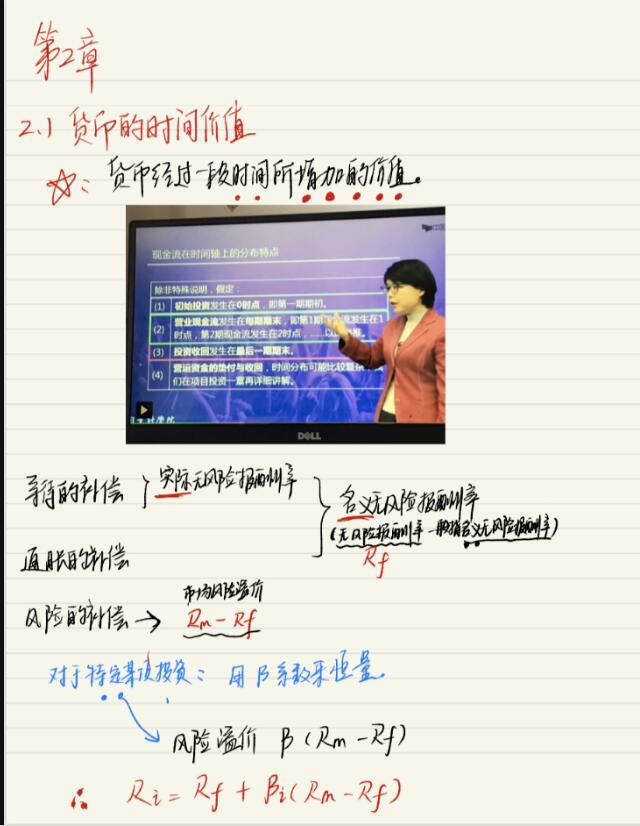 第2章
2.1 货币的时间价值
☆：货币经过一段时间所增加的价值。
现金流在时间轴上的分布特点
除非特殊说明，假定：
(1) 初始投资发生在0时点，即第一期期初。
(2) 营业现金流发生在每期期末，即第1期现金流发生在1
时点，第2期现金流发生在2时点，……以
(3) 投资收回发生在最后一期期末。
(4) 营运资金的垫付与收回，时间分布可能比较复杂
们在项目投资一章再详细讲解。
DELL
等待的补偿 } 实际无风险报酬率
名义无风险报酬率
(无风险报酬率一般指名义无风险报酬率)
Rf
通胀的补偿
市场风险溢价
风险的补偿 → Rm − Rf
对于特定某项投资：用β系数来恒量。
风险溢价 β(Rm − Rf)
∴ Ri = Rf + βi(Rm − Rf)